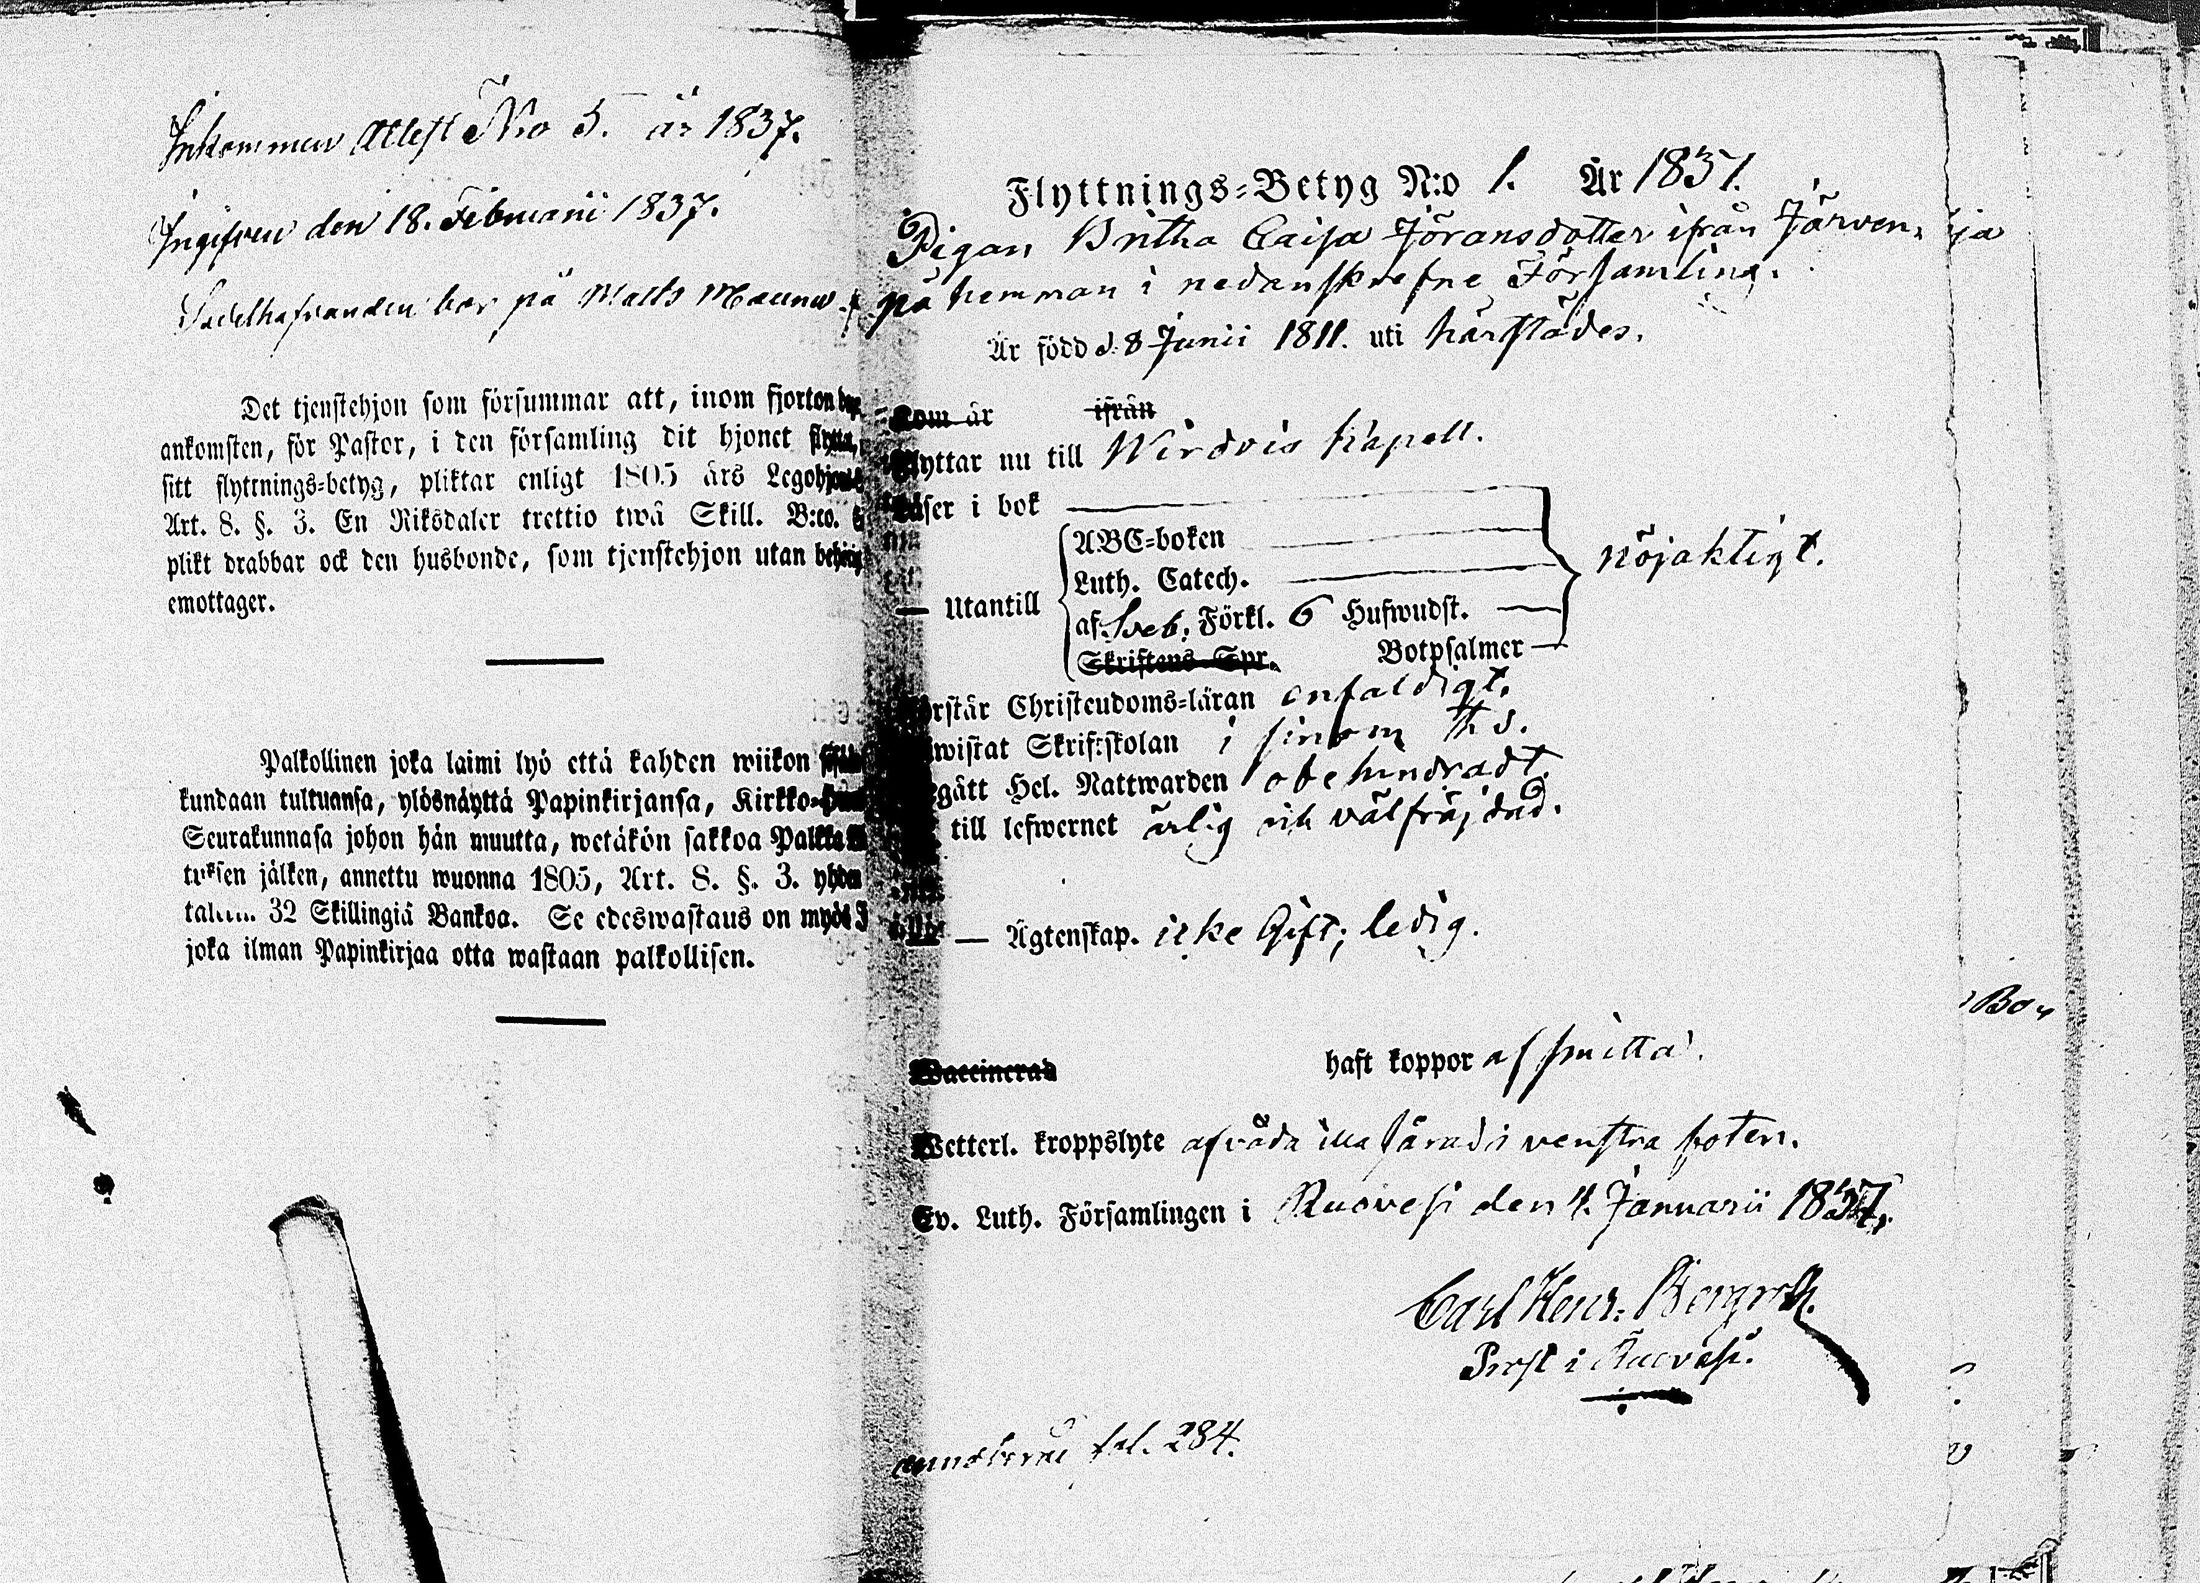 Inkommen Attest No 5. år 1837.
Ingifven den 18. Februarii 1837.
har på Matts
Det tjenstehjon som försummar att, inom fjorton
ankomsten, för Pastor, i den församling dit hjonet
sitt flyttnings-betyg, pliktar enligt 1805 års
Art. 8. §. 3. En Riksdaler trettio twå Skill. B:co.
plikt drabbar ock den husbonde, som tjenstehjon utan
emottager.
Palkollinen joka laimi lyö että kahden wiikon
kundaan tultuansa, ylösnäyttä Papinkirjansa, Kirkko-
Seurakunnasa johon hän muutta, wetäkön sakkoa
tuksen jälken, annettu wuonna 1805, Art. 8. §. 3. yhden
32 Skillingiä Bankoa. Se edeswastaus on myös
joka ilman Papinkirjaa otta wastaan palkollisen.
Flyttnings-Betyg N:o 1. År 1837.
Pigan Britha Caisa Jöransdotter ifrån Järven-
pä hemman i nedanskrefne Församling.
Är född d. 8 Junii 1811. uti härstädes.
Som är ifrån
Flyttar nu till Wirdois Kapell.
Läser i bok
ABC-boken
Luth. Catech.
nöjaktigt.
— Utantill
af Sveb. Förkl. 6 Hufwudst.
Skriftens Spr. Botpsalmer
Förstår Christendoms-läran enfaldigt.
Skriftskolan i sinom
Hel. Nattwarden obehindradt.
till lefwernet ärlig och välfräjdad.
— Ägtenskap. icke Gift; ledig.
Vaccinerad haft koppor
Wetterl. kroppslyte af våda illa sårad i venstra foten.
Ev. Luth. Församlingen i Ruovesi den 4. Januarii 1837.
Carl Henr. Bergroth.
Prost i Ruovesi.
fol. 284.